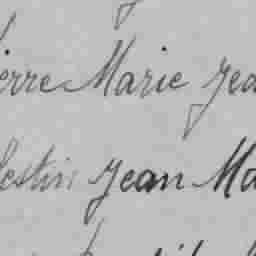 ierre Marie Jea
lestin Jean Ma